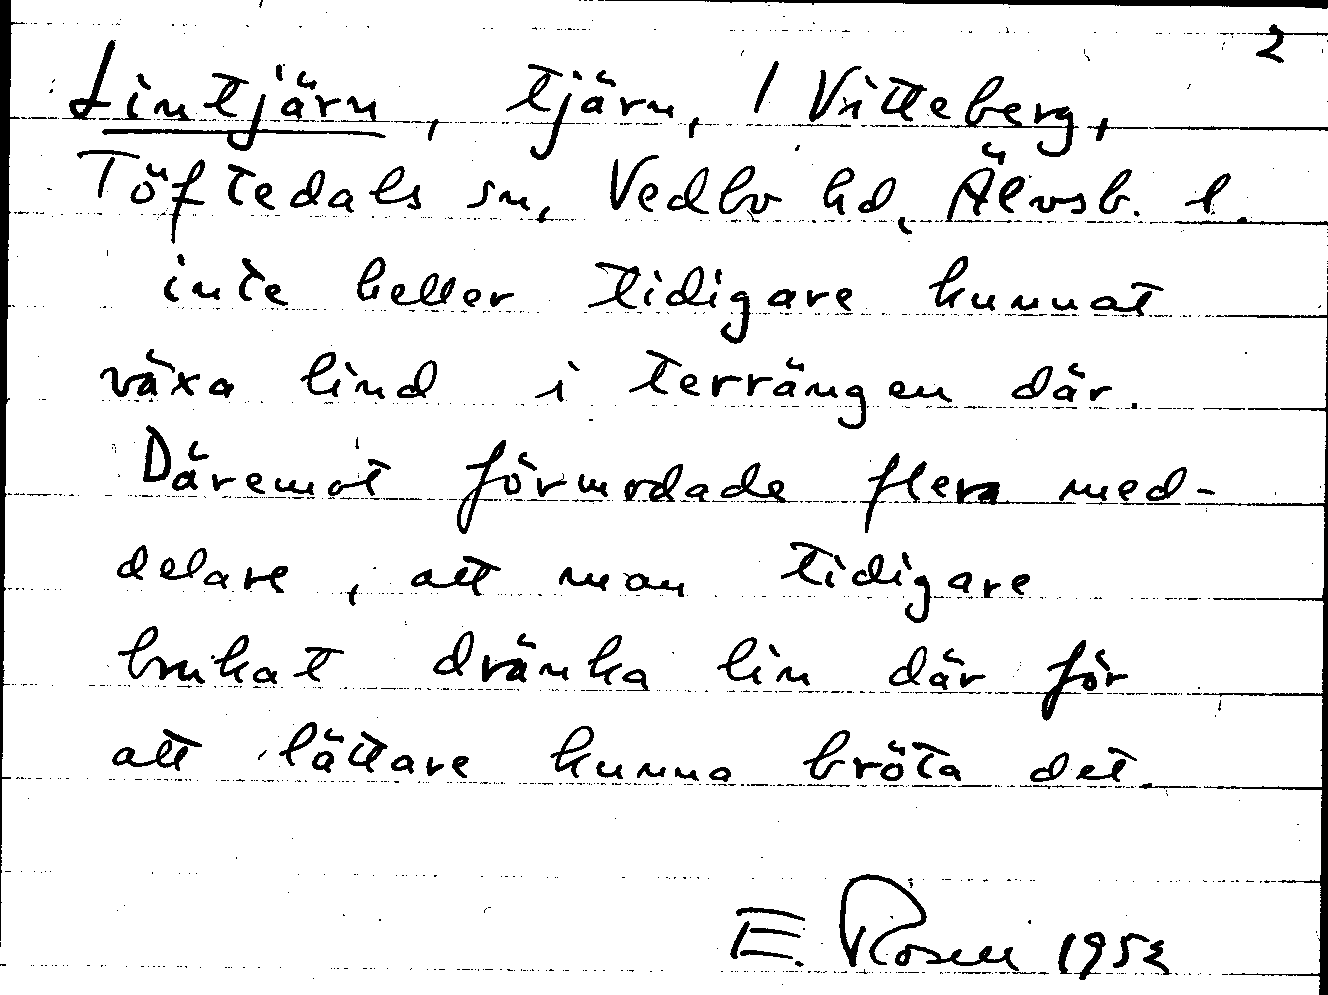 2
Lintjärn, tjärn, / Vitteberg,
Töftedals sn, Vedbo hd, Älvsb. l.
inte heller tidigare kunnat
växa lind i terrängen där.
Däremot förmodade flera med-
delare, att man tidigare
brukat dränka lin där för
att lättare kunna bröta det.
E. Rosell 1952